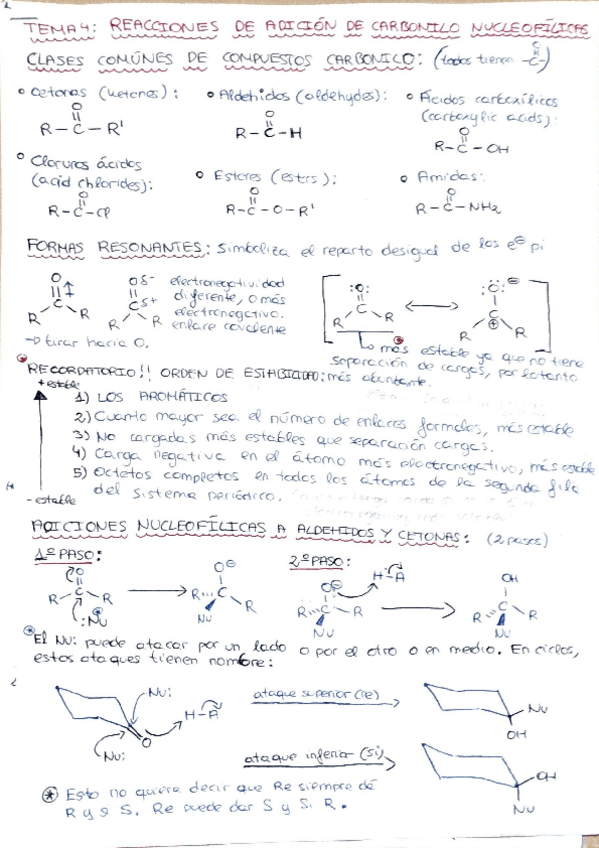 TEMA 4: REACCIONES DE ADICIÓN DE CARBONILO NUCLEOFÍLICAS
CLASES COMÚNES DE COMPUESTOS CARBONICO: (todos tienen -C-)
O
• Cetonas (ketones):
O
R-C-R'
• Aldehidos (aldehydes):
O
R-C-H
• Ácidos carboxílicos
(carboxylic acids):
O
R-C-OH
• Cloruros ácidos
(acid chlorides):
O
R-C-Cl
• Esteres (estrs):
O
R-C-O-R'
• Amidas:
O
R-C-NH2
FORMAS RESONANTES: Simboliza el reparto desigual de los e⊖ pi
O
C
R R
Oδ-
Cδ+
R R
→ tirar hacia O.
electronegatividad
diferente, O más
electronegativo.
enlace covalente
:O:
C
R R
:O:⊖
C
⊕
R R
más estable ya que no tiene
separación de cargas, por lo tanto
más abuntante.
RECORDATORIO!! ORDEN DE ESTABILIDAD:
+ estable
1) LOS AROMÁTICOS
2) Cuanto mayor sea el número de enlaces formales, más estable
3) No cargadas más estables que separación cargas.
4) Carga negativa en el átomo más electronegativo, más estable
5) Octetos completos en todos los átomos de la segunda fila
del sistema periódico.
- estable
ADICIONES NUCLEOFÍLICAS A ALDEHIDOS Y CETONAS: (2 pasos)
1º PASO:
O
R-C-R
:Nu
O⊖
R C R
Nu
2º PASO:
O⊖
H-A
R C R
Nu
OH
R C R
Nu
* El Nu: puede atacar por un lado o por el otro o en medio. En ciclos,
estos ataques tienen nombre:
Nu:
H-A
O
Nu:
ataque superior (re)
Nu
OH
ataque inferior (Si)
OH
Nu
* Esto no quiere decir que Re siempre dé
R y si S. Re puede dar S y Si R.